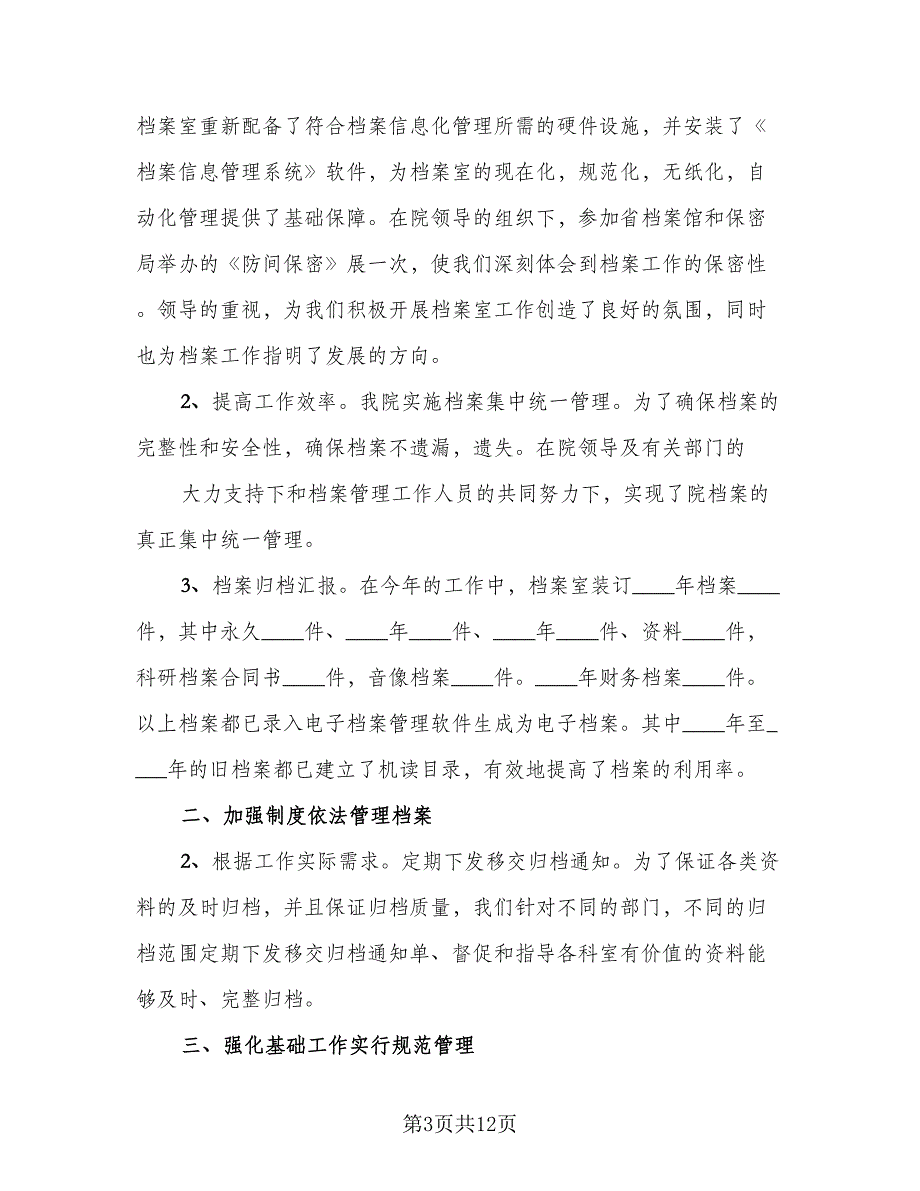 档案室重新配备了符合档案信息化管理所需的硬件设施，并安装了《
档案信息管理系统》软件，为档案室的现在化，规范化，无纸化，自
动化管理提供了基础保障。在院领导的组织下，参加省档案馆和保密
局举办的《防间保密》展一次，使我们深刻体会到档案工作的保密性
。领导的重视，为我们积极开展档案室工作创造了良好的氛围，同时
也为档案工作指明了发展的方向。
2、提高工作效率。我院实施档案集中统一管理。为了确保档案的
完整性和安全性，确保档案不遗漏，遗失。在院领导及有关部门的
大力支持下和档案管理工作人员的共同努力下，实现了院档案的
真正集中统一管理。
3、档案归档汇报。在今年的工作中，档案室装订____年档案____
件，其中永久____件、____年____件、____年____件、资料____件，
科研档案合同书____件，音像档案____件。____年财务档案____件。
以上档案都已录入电子档案管理软件生成为电子档案。其中____年至_
___年的旧档案都已建立了机读目录，有效地提高了档案的利用率。
二、加强制度依法管理档案
2、根据工作实际需求。定期下发移交归档通知。为了保证各类资
料的及时归档，并且保证归档质量，我们针对不同的部门，不同的归
档范围定期下发移交归档通知单、督促和指导各科室有价值的资料能
够及时、完整归档。
三、强化基础工作实行规范管理
第3页共12页